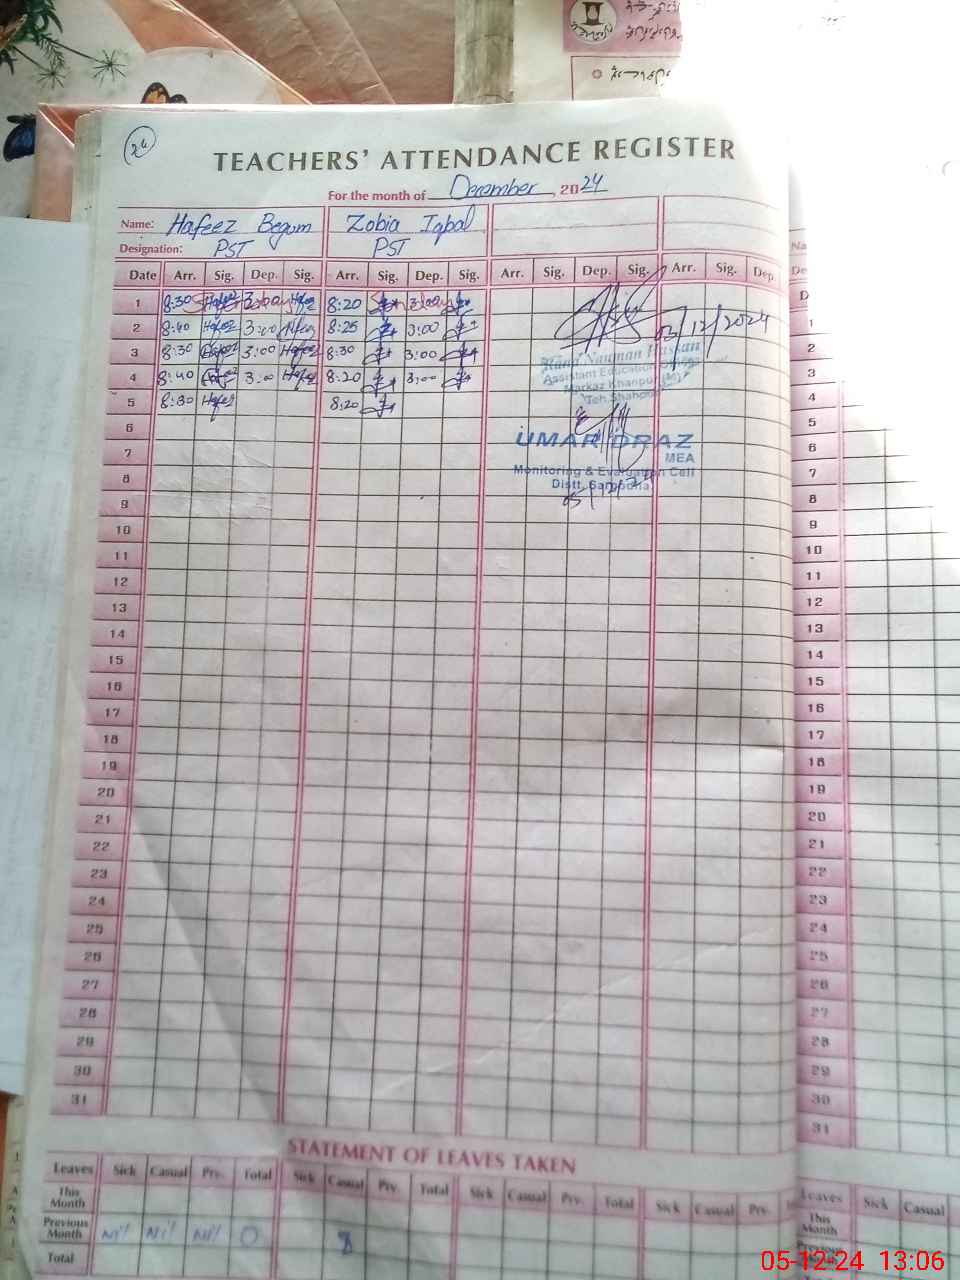 24
TEACHERS' ATTENDANCE REGISTER
For the month of December, 2024
Name: Hafeez Begum Zobia Iqbal
Designation: PST PST
Date Arr. Sig. Dep. Sig. Arr. Sig. Dep. Sig. Arr. Sig. Dep. Sig. Arr. Sig. Dep.
1 8:30 Sunday Hafeez 8:20 Sunday 3:00
2 8:40 Hafeez 3:00 Hafeez 8:25 3:00
03/12/2024
3 8:30 Hafeez 3:00 Hafeez 8:30 3:00
Rana Nauman Hassan
Assistant Education Officer
Markaz Khanpur (M)
Teh. Shahpur
4 8:40 Hafeez 3:00 Hafeez 8:20 3:00
5 8:30 Hafeez 8:20
6
UMAR DRAZ
MEA
7
Monitoring & Evaluation Cell
Distt. Sargodha
8
05/12/24
9
10
11
12
13
14
15
16
17
18
19
20
21
22
23
24
25
26
27
28
29
30
31
STATEMENT OF LEAVES TAKEN
Leaves Sick Casual Prv. Total Sick Casual Prv. Total Sick Casual Prv. Total Sick Casual Prv.
This Month
Previous Month Nil Nil Nil 0 8
Total
Na
De
D
1
2
3
4
5
6
7
8
9
10
11
12
13
14
15
16
17
18
19
20
21
22
23
24
25
26
27
28
29
30
31
Leaves Sick Casual
This Month
Previous Month
05-12-24 13:06